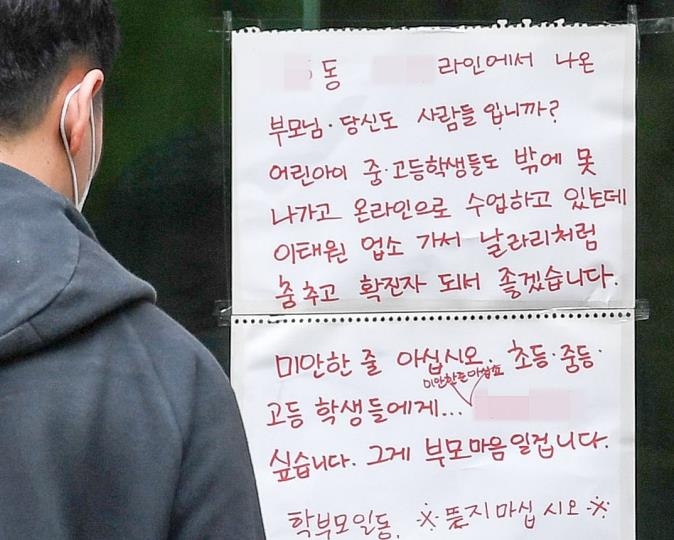 동 라인에서 나온
부모님·당신도 사람들 입니까?
어린아이 중·고등학생들도 밖에 못
나가고 온라인으로 수업하고 있는데
이태원 업소 가서 날라리처럼
춤추고 확진자 되서 좋겠습니다.
미안한 줄 아십시오. 초등·중등·
미안한줄아십쇼
고등 학생들에게...
싶습니다. 그게 부모마음일겁니다.
학부모일동. ※뜯지마십시오※